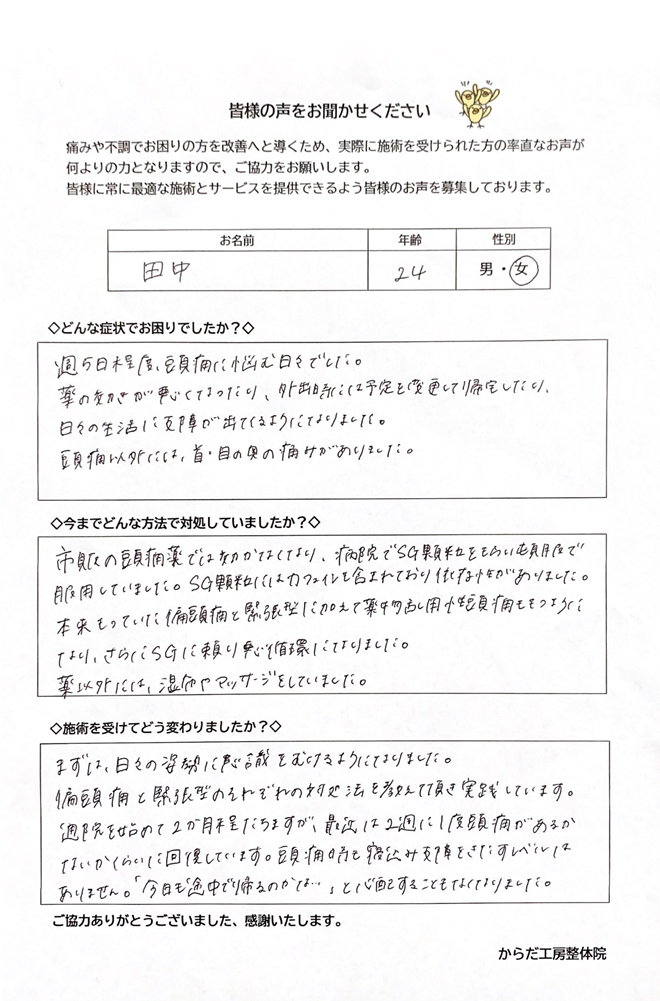 皆様の声をお聞かせください
痛みや不調でお困りの方を改善へと導くため、実際に施術を受けられた方の率直なお声が
何よりの力となりますので、ご協力をお願いします。
皆様に常に最適な施術とサービスを提供できるよう皆様のお声を募集しております。
お名前 年齢 性別
田中 24 男・女
◇どんな症状でお困りでしたか？◇
週5日程度、頭痛に悩む日々でした。
薬の効きが悪くなったり、外出時には予定を変更して帰宅したり、
日々の生活に支障が出てくるようになりました。
頭痛以外には、首・目の奥の痛みがありました。
◇今までどんな方法で対処していましたか？◇
市販の頭痛薬では効かなくなり、病院でSG顆粒をもらい頓服で
服用していました。SG顆粒にはカフェインも含まれており依存性がありました。
本来もっていた偏頭痛と緊張型に加えて薬物乱用性頭痛ももつように
なり、さらにSGに頼り悪循環になりました。
薬以外には、湿布やマッサージをしていました。
◇施術を受けてどう変わりましたか？◇
まずは、日々の姿勢に意識をむけるようになりました。
偏頭痛と緊張型のそれぞれの対処法を教えて頂き実践しています。
通院を始めて2か月程たちますが、最近は2週に1度頭痛があるか
ないかくらいに回復しています。頭痛時も寝込み支障をきたすレベルは
ありません。「今日も途中で帰るのかな…」と心配することもなくなりました。
ご協力ありがとうございました、感謝いたします。
からだ工房整体院